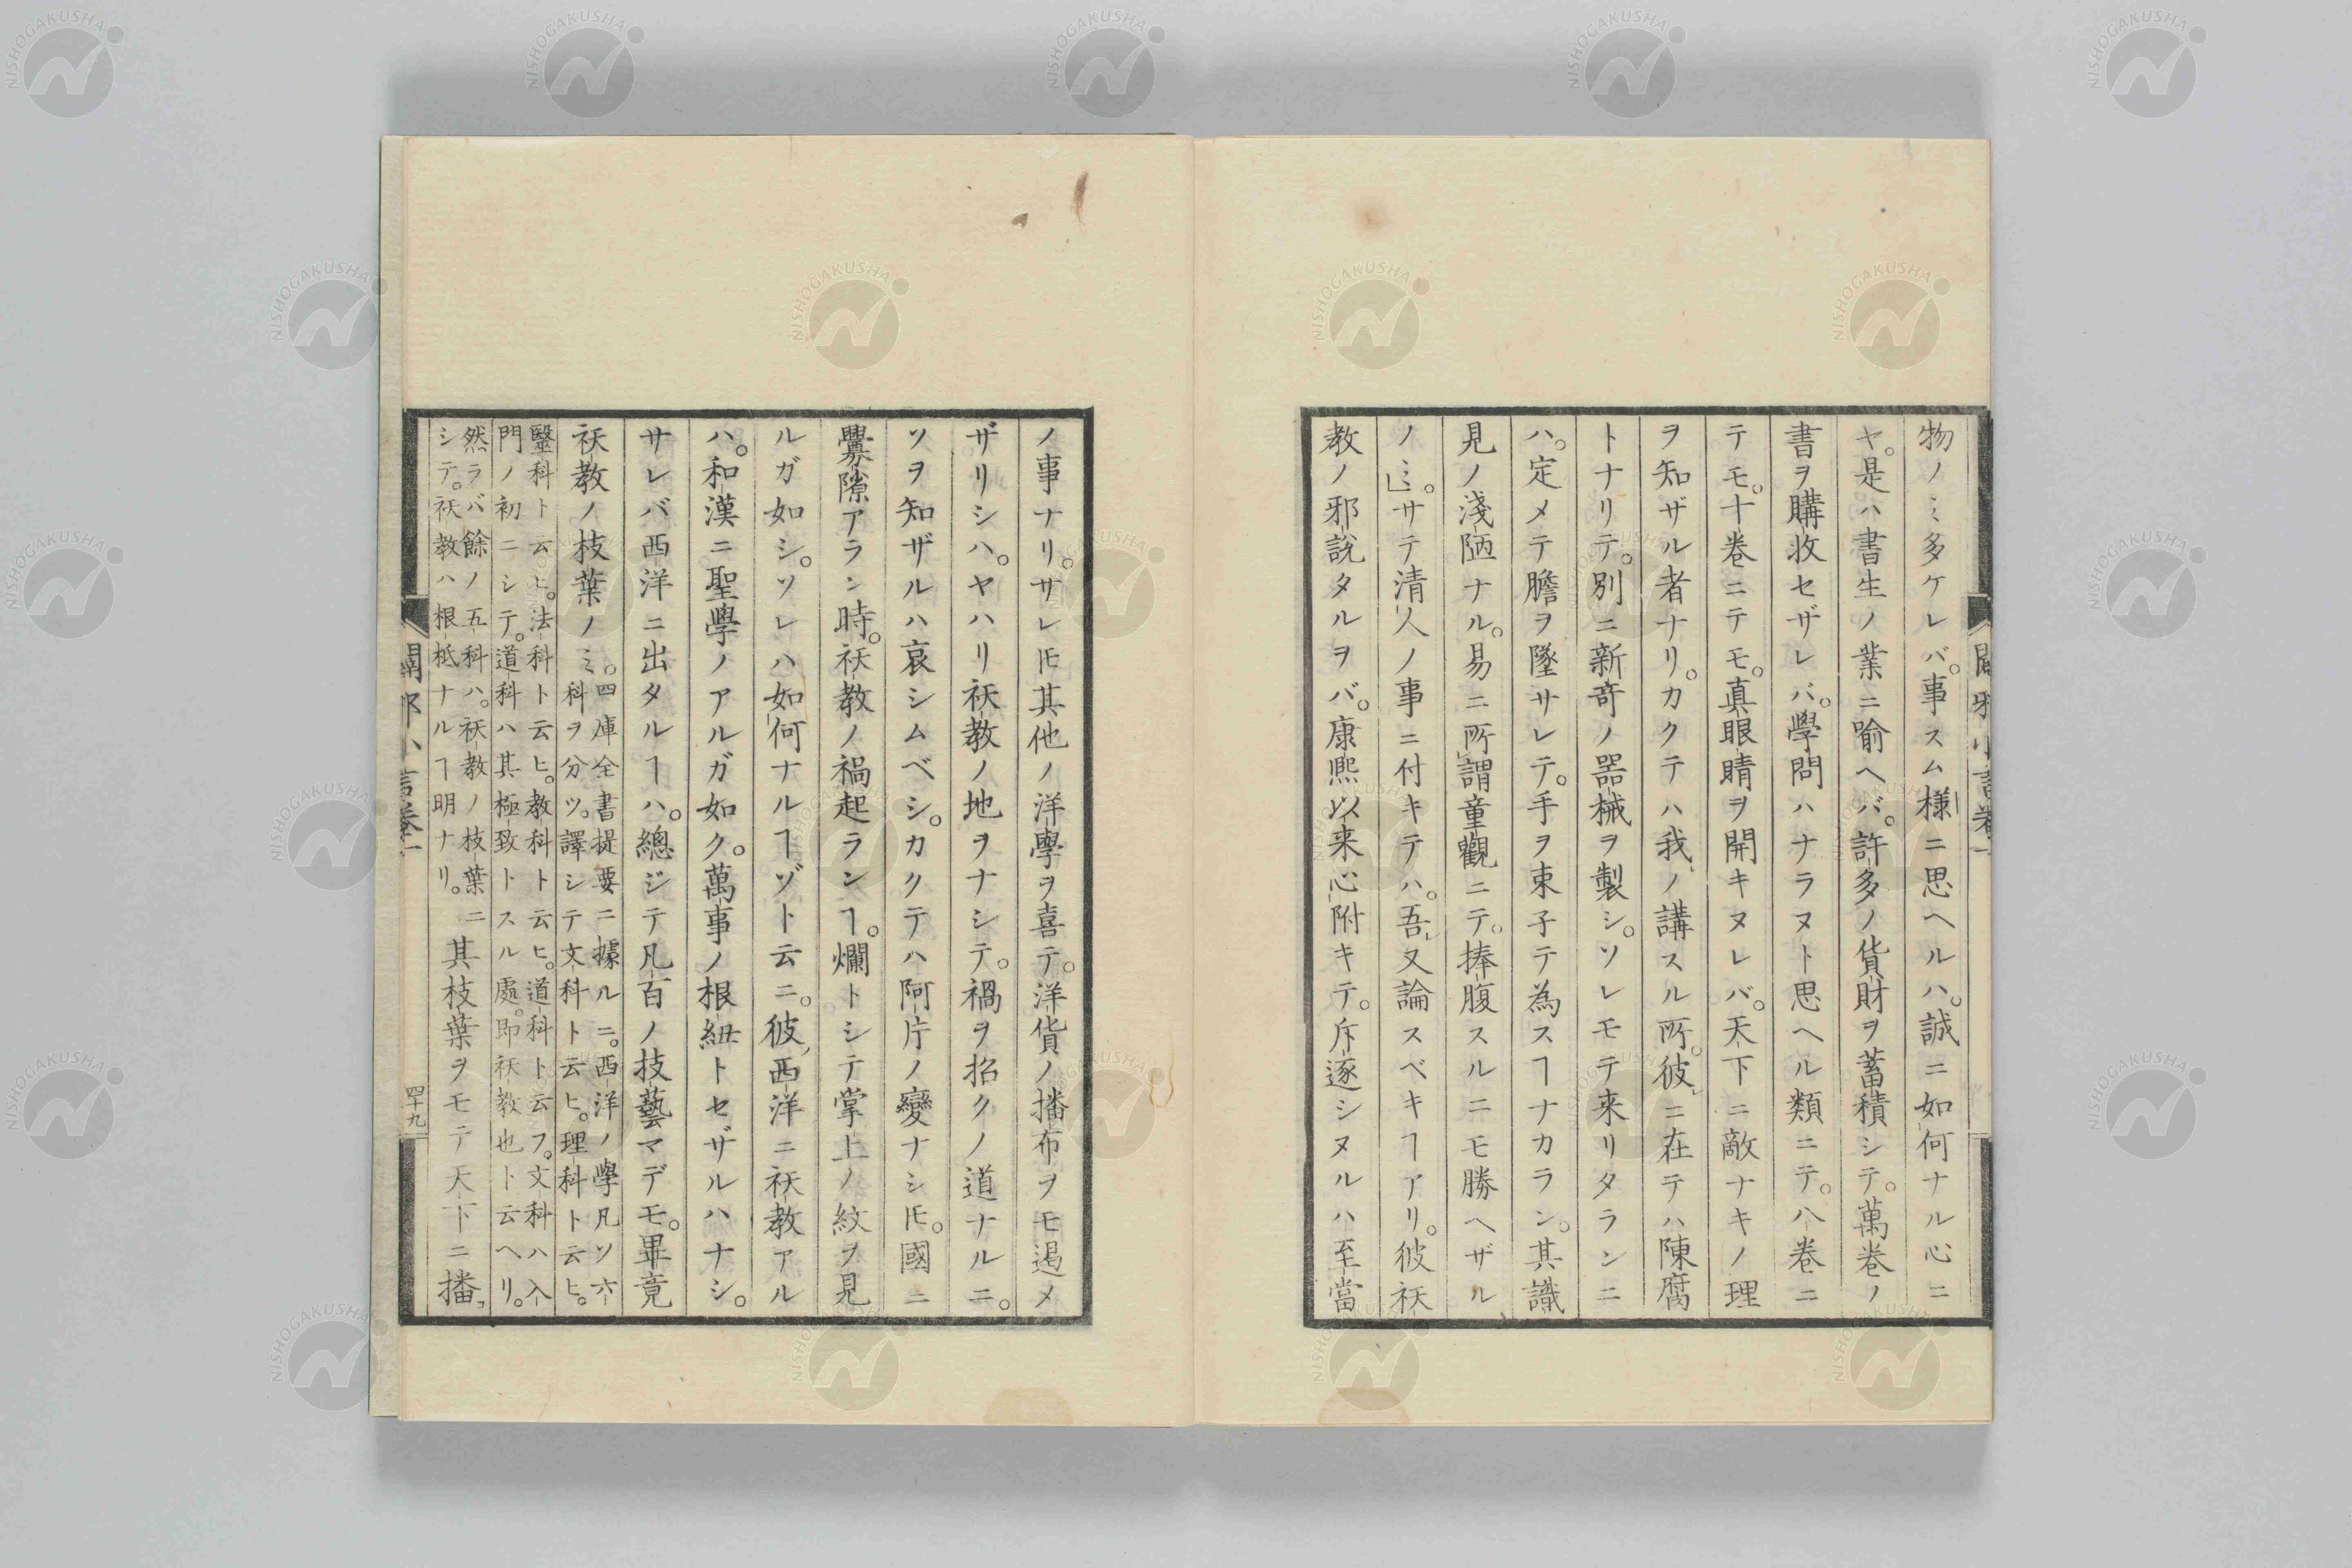 闢邪小言卷一
物ノミ多ケレバ。事スム様ニ思ヘルハ。誠ニ如何ナル心ニ
ヤ。是ハ書生ノ業ニ喻ヘバ。許多ノ貨財ヲ蓄積シテ。萬卷ノ
書ヲ購收セザレバ。學問ハナラヌト思ヘル類ニテ。八卷ニ
テモ。十卷ニテモ。真眼晴ヲ開キヌレバ。天下ニ敵ナキノ理
ヲ知ザル者ナリ。カクテハ我ノ講スル所。彼ニ在テハ陳腐
トナリテ。別ニ新奇ノ器械ヲ製シ。ソレモテ来リタランニ
ハ。定メテ膽ヲ墜サレテ。手ヲ束子テ為スヿナカラン。其識
見ノ淺陋ナル。易ニ所謂童觀ニテ。捧腹スルニモ勝ヘザル
ノミ」。サテ清人ノ事ニ付キテハ。吾又論スベキヿアリ。彼祅
教ノ邪說タルヲバ。康熙以来心附キテ。斥逐シヌルハ至當
ノ事ナリ。サレ𪜈其他ノ洋學ヲ喜テ。洋貨ノ播布ヲモ遏メ
ザリシハ。ヤハリ祅教ノ地ヲナシテ。禍ヲ招クノ道ナルニ。
ソヲ知ザルハ哀シムベシ。カクテハ阿片ノ變ナシ𪜈。國ニ
釁隙アラン時。祅教ノ禍起ランヿ。爛トシテ掌上ノ紋ヲ見
ルガ如シ。ソレハ如何ナルヿゾト云ニ。彼西洋ニ祅教アル
ハ。和漢ニ聖學ノアルガ如ク。萬事ノ根紐トセザルハナシ。
サレバ西洋ニ出タルヿハ。總ジテ凡百ノ技藝マデモ。畢竟
祅教ノ枝葉ノミ。
四庫全書提要ニ據ルニ。西洋ノ學凡ソ六
科ヲ分ツ。譯シテ文科ト云ヒ。理科ト云ヒ。
毉科ト云ヒ。法科ト云ヒ。教科ト云ヒ。道科ト云フ。文科ハ入
門ノ初ニシテ。道科ハ其極致トスル處。即祅教也ト云ヘリ。
然ラバ餘ノ五科ハ。祅教ノ枝葉ニ
シテ。祅教ハ根柢ナルヿ明ナリ。
其枝葉ヲモテ天下ニ播
闢邪小言卷一
四十九